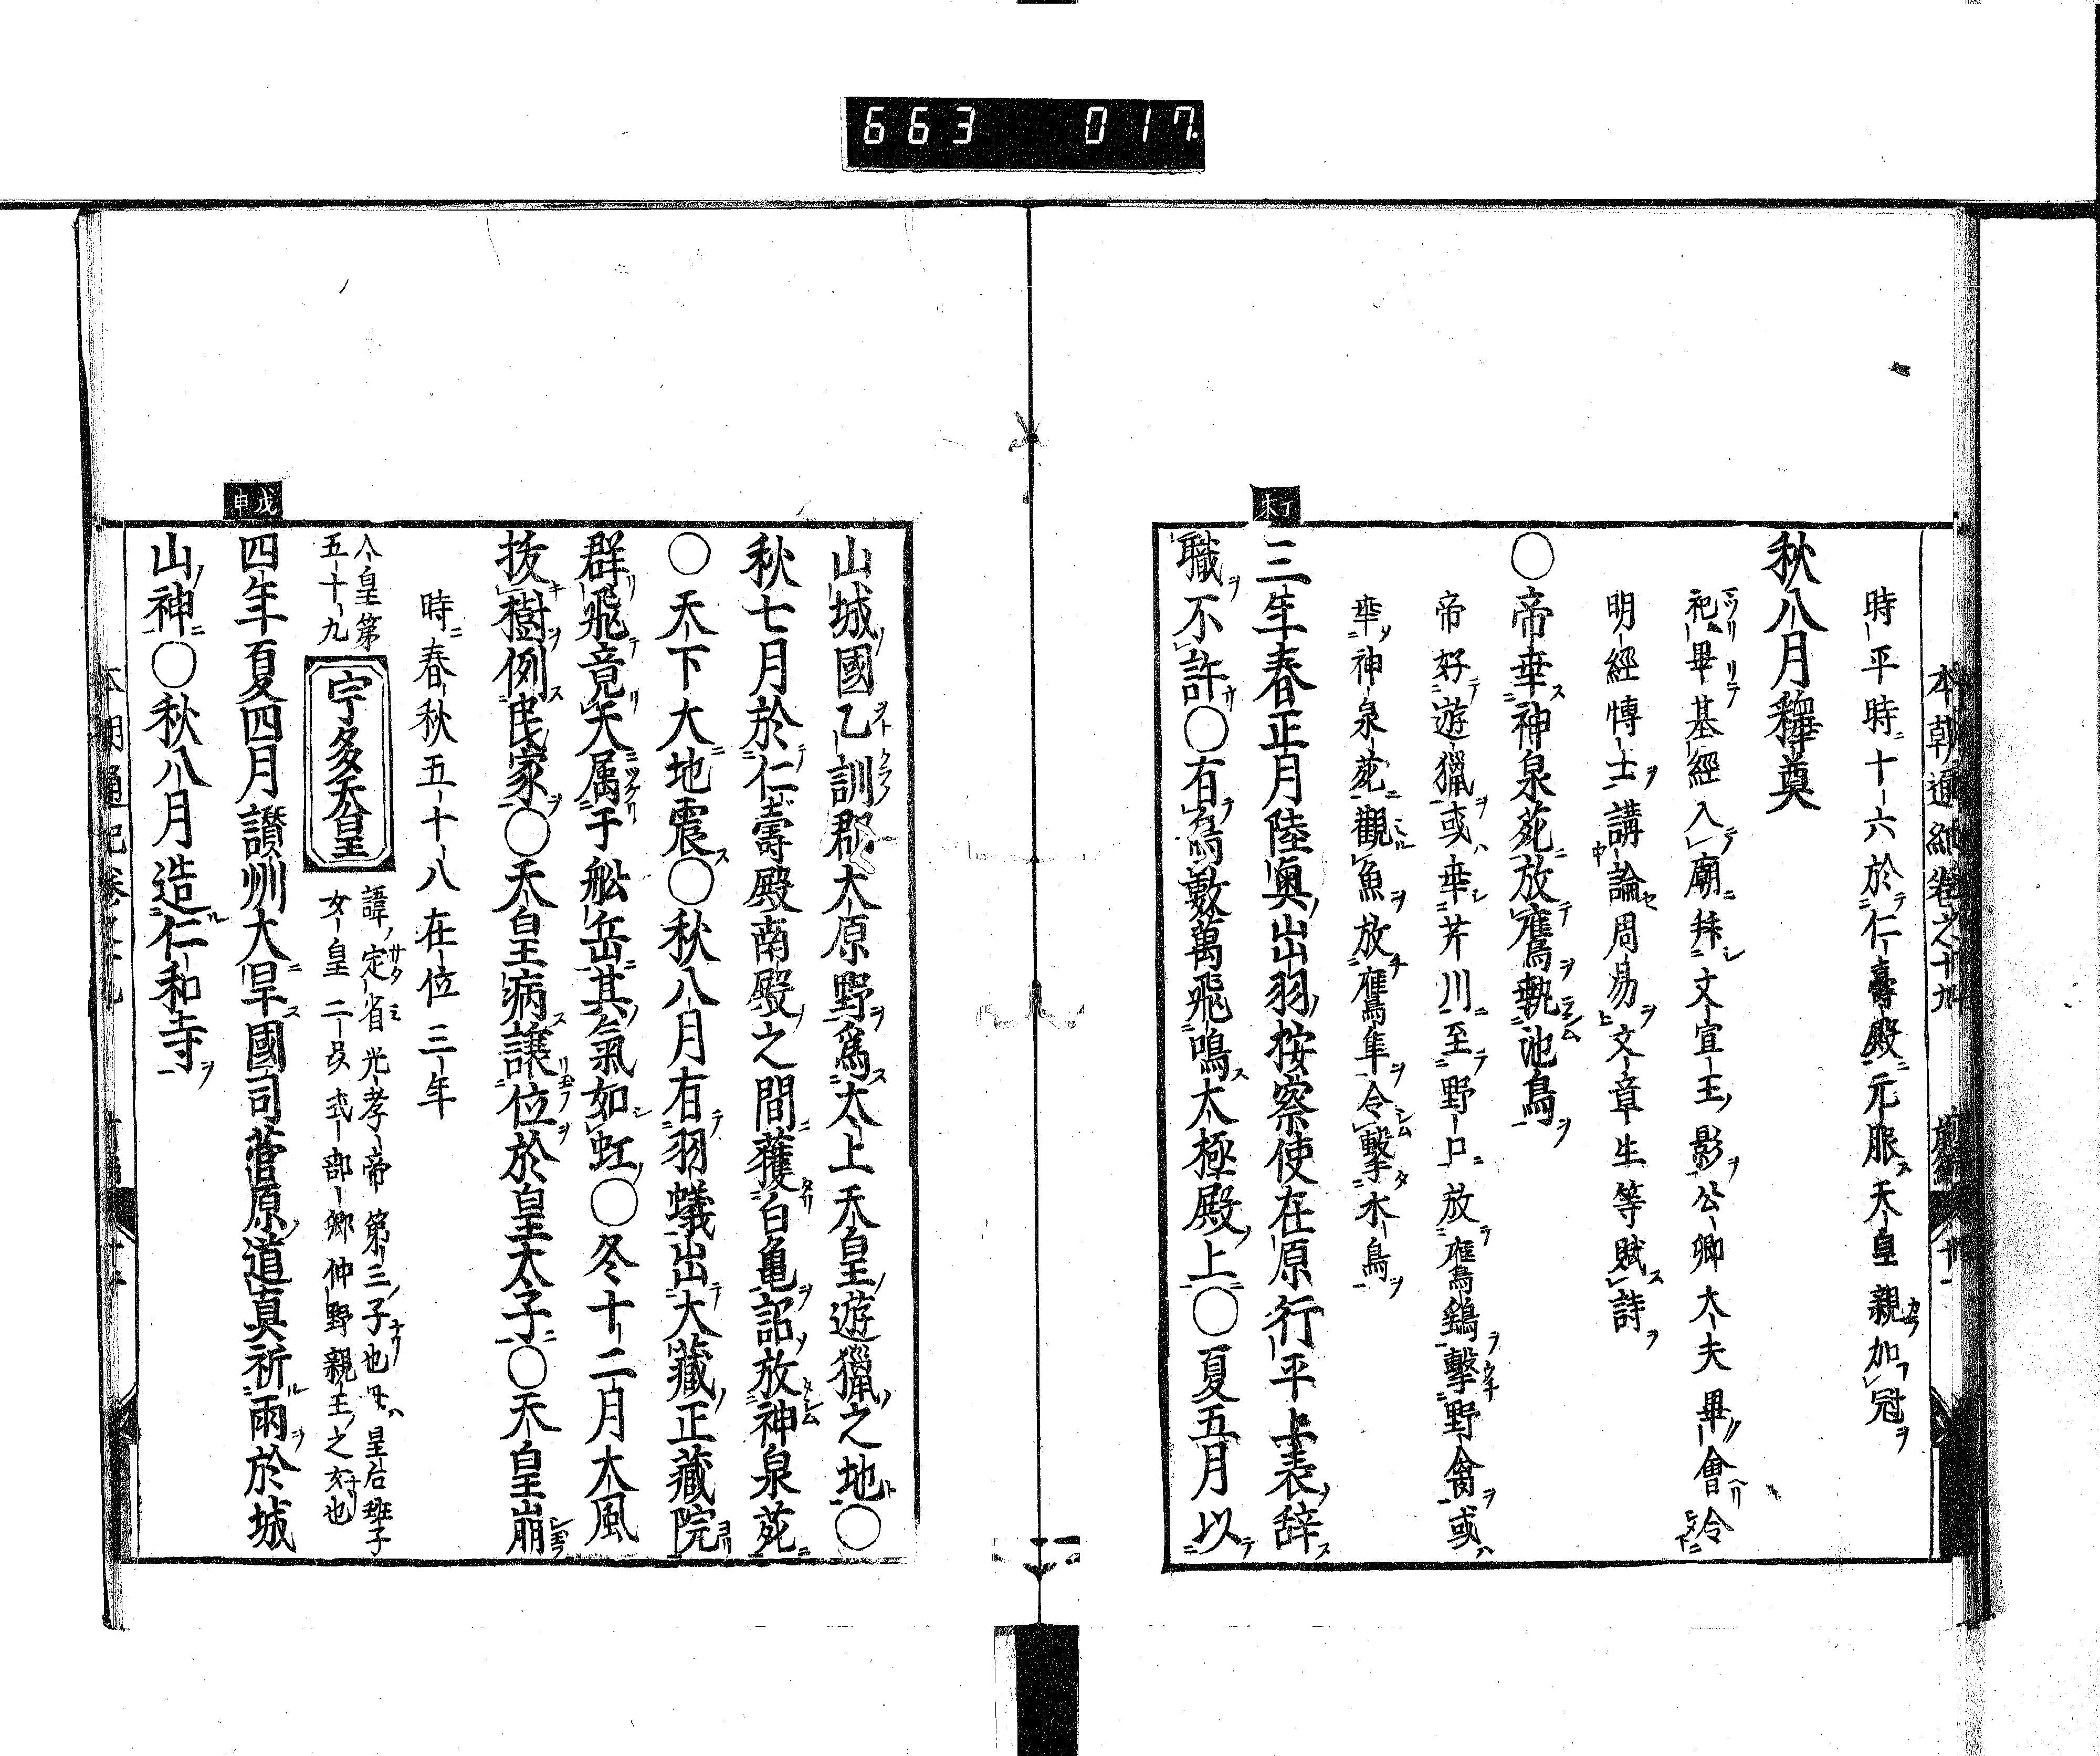 663 017
本朝通紀卷之十九 前編 十一
時平時十六於仁壽殿元服天皇親加冠
秋八月釋奠
祀畢基經入廟拜文宣王影公卿大夫畢會令
明經博士講論周易文章生等賦詩
○帝幸神泉苑放鷹執池鳥
帝好遊獵或幸芹川至野口放鷹鷂擊野禽或
幸神泉苑觀魚放鷹隼令擊水鳥
丁未
三年春正月陸奥出羽按察使在原行平上表辞
職不許○有鳥數萬飛鳴太極殿上○夏五月以
山城國乙訓郡大原野爲太上天皇遊獵之地○
秋七月於仁壽殿南殿之間獲白亀詔放神泉苑
○天下大地震○秋八月有羽蟻出大藏正藏院
群飛竟天属于舩岳其氣如虹○冬十二月大風
拔樹倒民家○天皇病讓位於皇太子○天皇崩
時春秋五十八在位三年
人皇第五十九
宇多天皇
諱定省光孝帝第三子也母皇后班子
女皇二品式部卿仲野親王之女也
戊申
四年夏四月讃州大旱國司菅原道真祈雨於城
山神○秋八月造仁和寺